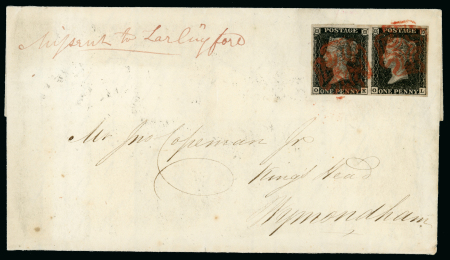 POSTAGE POSTAGE
Missent to
O K O L
ONE PENNY ONE PENNY
Mr Jno Copeman Jr
Kings Head
Wymondham